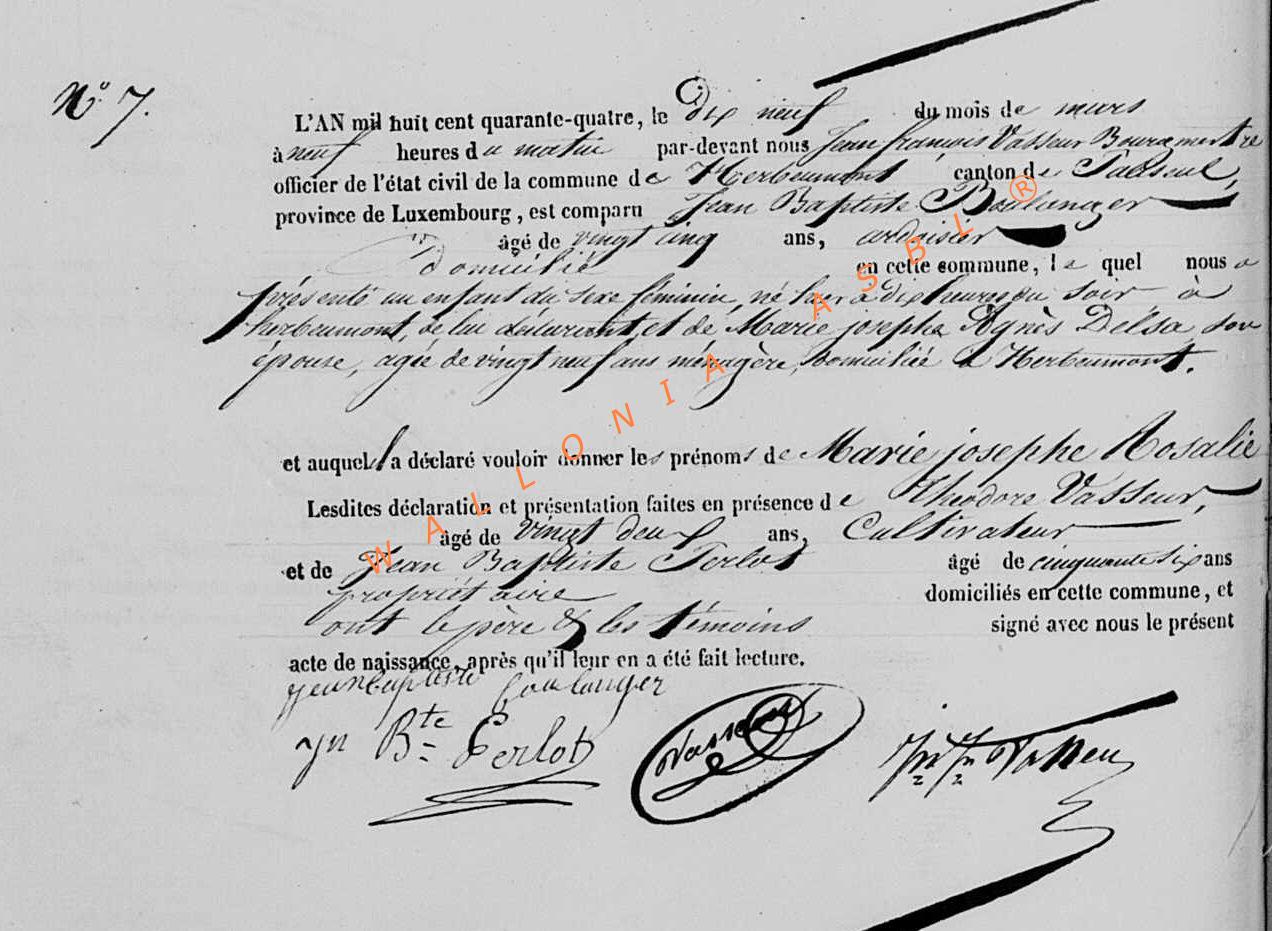 N.o 7.
L'AN mil huit cent quarante-quatre, le Dix neuf du mois de mars
à neuf heures du matin par-devant nous Jean françois Vasseur Bourgmestre
officier de l'état civil de la commune de Herbeumont canton de Paliseul,
province de Luxembourg, est comparu Jean Baptiste Boulanger
âgé de vingt cinq ans, ardoisier
domicilié en cette commune, lequel nous a
présenté un enfant du sexe féminin, né hier à dix heures du soir à
herbeumont, de lui déclarant, et de Marie josephe Agnès Delsa, son
épouse, agée de vingt neuf ans ménagère, domicilié à Herbeumont.
et auquel il a déclaré vouloir donner les prénoms de Marie josephe Rosalie
Lesdites déclaration et présentation faites en présence de Théodore Vasseur,
âgé de vingt deux ans, Cultivateur
et de Jean Baptiste Terlot âgé de cinquante six ans
propriétaire domiciliés en cette commune, et
ont le père & les témoins signé avec nous le présent
acte de naissance, après qu'il leur en a été fait lecture.
jean baptiste boulanger
Jn Bte Terlot Vasseur Jn fs Vasseur
WALLONIA ASBL ®